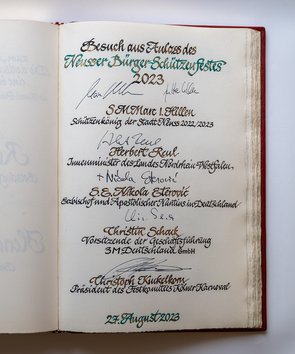 Besuch aus Anlass des
Neusser Bürger-Schützenfestes
2023
S.M. Marc I. Hillen
Schützenkönig der Stadt Neuss 2022/2023
Herbert Reul
Innenminister des Landes Nordrhein-Westfalen
+ Nikola Eterović
S.E. Nikola Eterović
Erzbischof und Apostolischer Nuntius in Deutschland
Christin Schack
Vorsitzende der Geschäftsführung
3M Deutschland GmbH
Christoph Kuckelkorn
Präsident des Festkomitees Kölner Karneval
27. August 2023